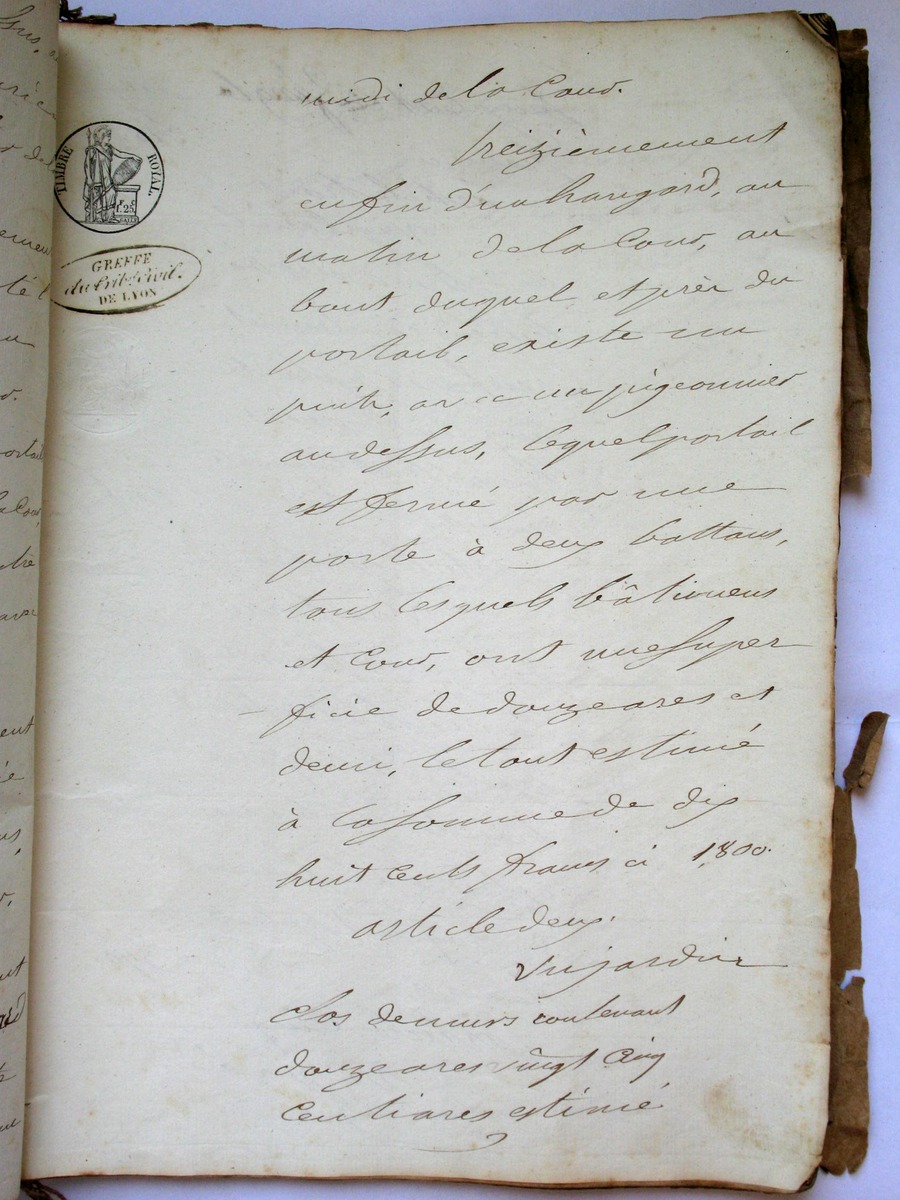 midi de la Cour.
treizièmement
enfin d'un hangard, au
matin de la Cour, au
bout duquel et près du
portail, existe un
puits, avec un pigeonnier
au dessus, lequel portail
est fermé par une
porte à deux battans,
tous lesquels bâtimens
et Cour, ont une super
ficie de douze ares et
demi, le tout estimé
à la somme de dix
huit cents francs ci 1,800.
article deux.
Un jardin
clos de murs contenant
douze ares vingt cinq
centiares estimé
TIMBRE ROYAL
GREFFE
du trib.l civil.
DE LYON